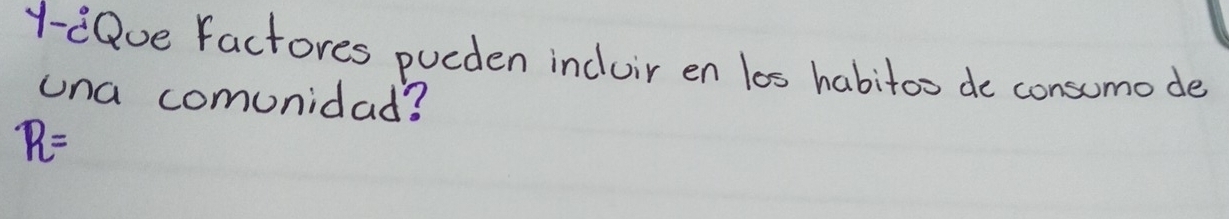 Y-¿Que Factores pueden incluir en los habitos de consumo de
una comunidad?
R=